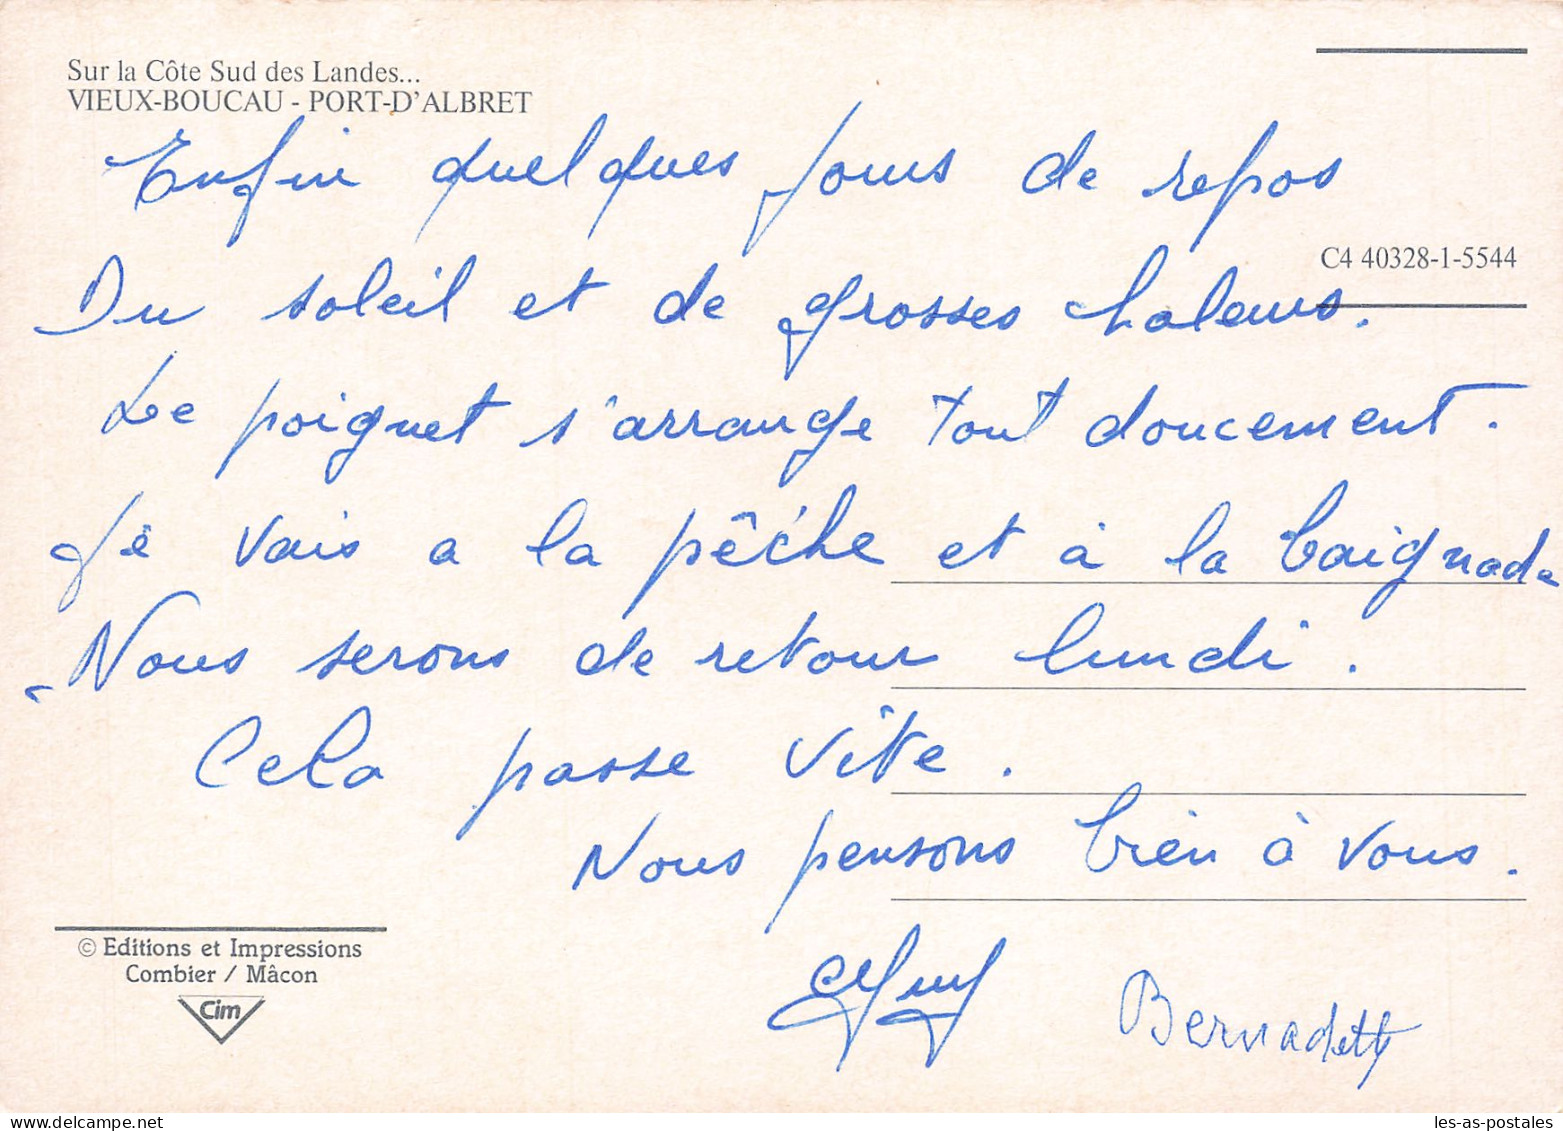 Sur la Côte Sud des Landes...
VIEUX-BOUCAU - PORT-D'ALBRET
Enfin quelques jours de repos
C4 40328-1-5544
Du soleil et de grosses chaleurs.
Le poignet s'arrange tout doucement.
Je vais a la pêche et à la baignade
Nous serons de retour lundi.
Cela passe vite.
Nous pensons bien à vous.
Bernadette
© Editions et Impressions
Combier / Mâcon
Cim
les-as-postales